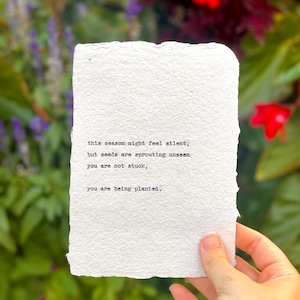 this season might feel silent,
but seeds are sprouting unseen
you are not stuck,
you are being planted.